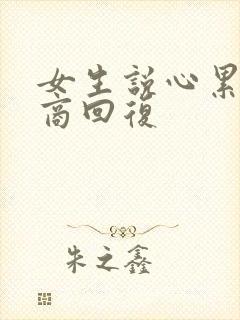 女生説心累
商回復
朱之鑫